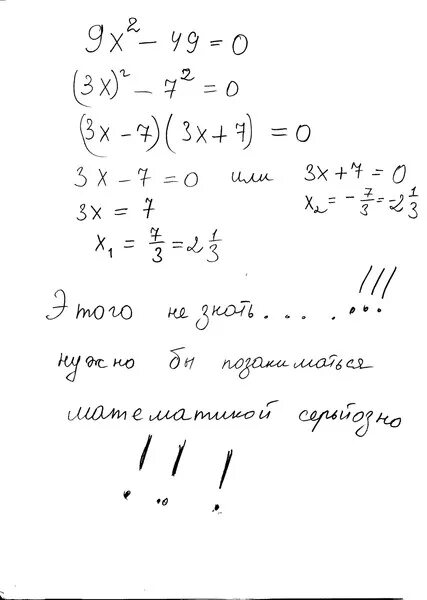 9x² - 49 = 0
(3x)² - 7² = 0
(3x - 7)(3x + 7) = 0
3x - 7 = 0 или 3x + 7 = 0
3x = 7 x₂ = - 7/3 = -2 1/3
x₁ = 7/3 = 2 1/3
Этого не знать.... ...!!!
нужно бы позаниматься
математикой серьйозно
!!!